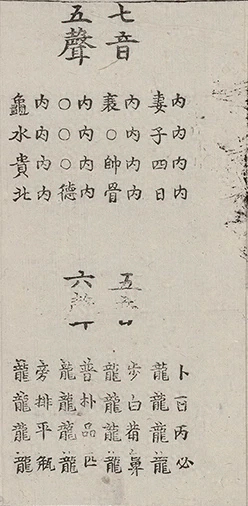 七音
五聲
内内内内
妻子四日
内内内内
衰○帥骨
内内内内
○○○德
内内内内
龜水貴北
五
六
卜百丙必
龍龍龍龍
步白鼻
龍龍龍龍
普朴品匹
龍龍龍龍
旁排平瓶
龍龍龍龍